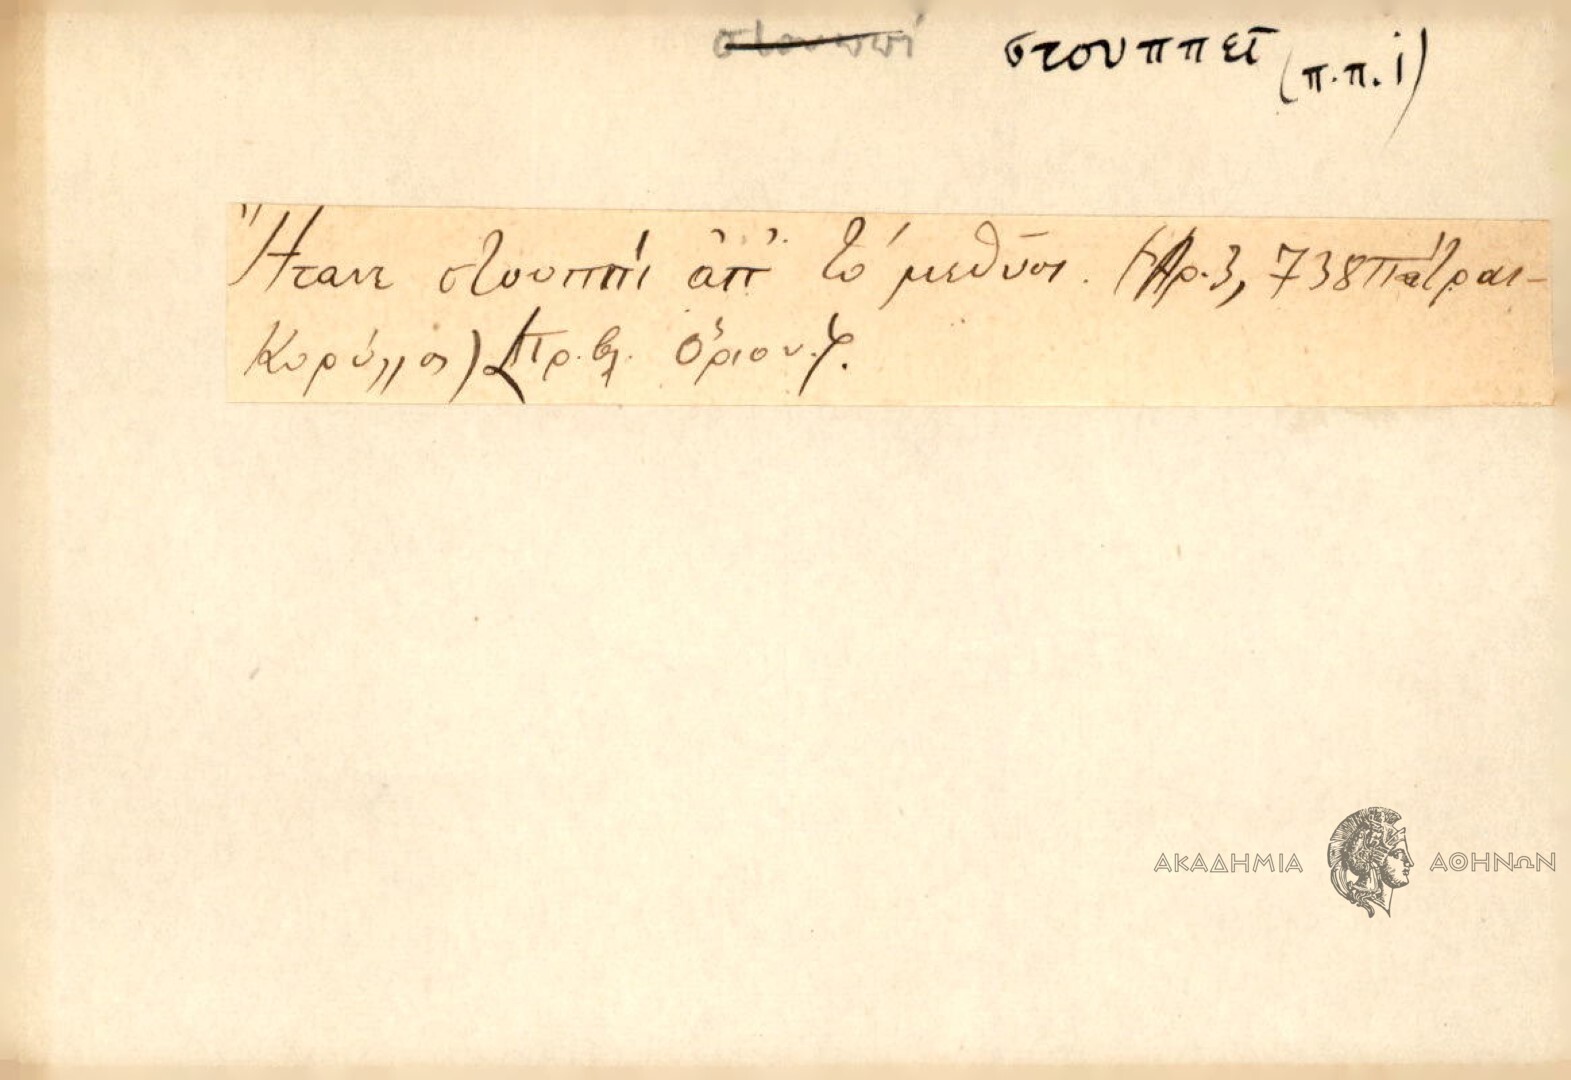 στουππί στουππεῖ (π.π. ί)
Ἤτανε στουππὶ ἀπ' τὸ μεθύσι. (Ἀρ. 3, 738 Πάτραι-
Κορύλλος) Πρ. βλ. Ὀρίον. φ.
ΑΚΑΔΗΜΙΑ ΑΘΗΝΩΝ